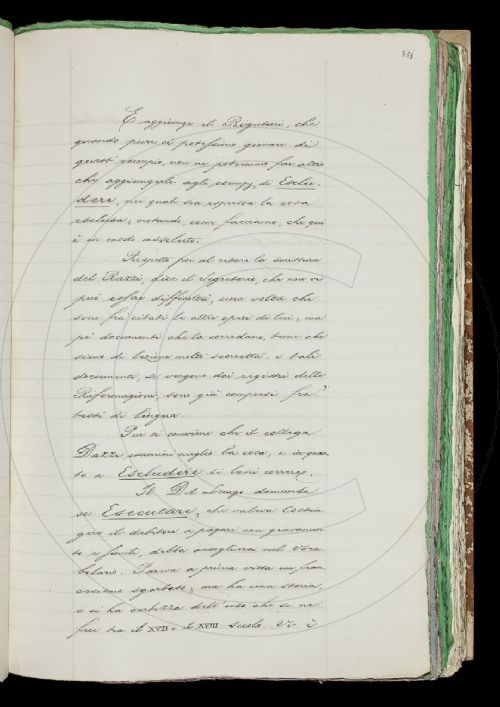 E aggiunge il Rigutini, che
quando pure ci potessimo giovare di
questi esempio, non ne potremmo far altro
che aggiungerlo agli esempj di Esclu-
dere, pei quali sia espressa la cosa
esclusa; notando, come facciamo, che qui
è in modo assoluto.
Rispetto poi al citare la scrittura
del Razzi, dice il Segretario, che non vi
può essere difficoltà, una volta che
sono fra' citati le altre opere di lui; ma
pe' documenti che la corredano, teme che
siano di lezione molto scorretta, e tali
documenti, se vengono dai registri delle
Riformagioni, sono già compresi fra'
testi di lingua
Pur si conviene che il collega
Dazzi esamini meglio la cosa, e in quan-
to a Escludere si lasci correre.
Il Del Lungo domanda
se Esecutare, che valeva Costrin-
gere il debitore a pagare con gravamen-
to e simili, debba accogliersi nel Voca-
bolario. Pareva a prima vista un fran-
cesismo sgarbato; ma ha una storia,
e si ha certezza dell'uso che se ne
fece tra il XVII e il XVIII secolo. Vi è